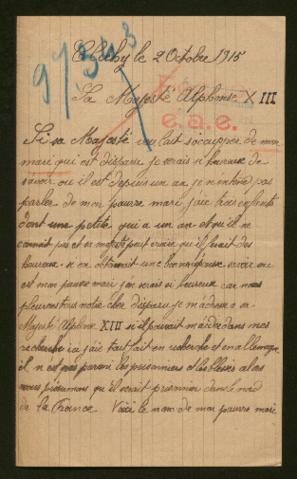 Clichy le 2 Octobre 1915
97343
Sa Majesté Alphonse XIII
e.a.e.
Si sa Majesté voulait s'occuper de mon
mari qui est disparu je serais si heureuse de
savoir ou il est depuis un an je n'entend pas
parler de mon pauvre mari j'ai trois enfants
dont une petite qui a un an et qu'il ne
connait pas et sa majesté peut croire qu'il ferait des
heureux si on obtenait une bonne réponse savoir ou
est mon pauvre mari j'en serais si heureuse car nous
pleurons tous notre cher disparu je m'adresse a sa
Majesté Alphonse XIII si il pouvait m'aidé dans mes
recherche ici j'ai tout fait en recherche et en allemagne
il n est pas parmi les prisonniers et les blessés alors
nous présumons qu'il serait prisonnier dans le nord
de la France Voici le nom de mon pauvre mari